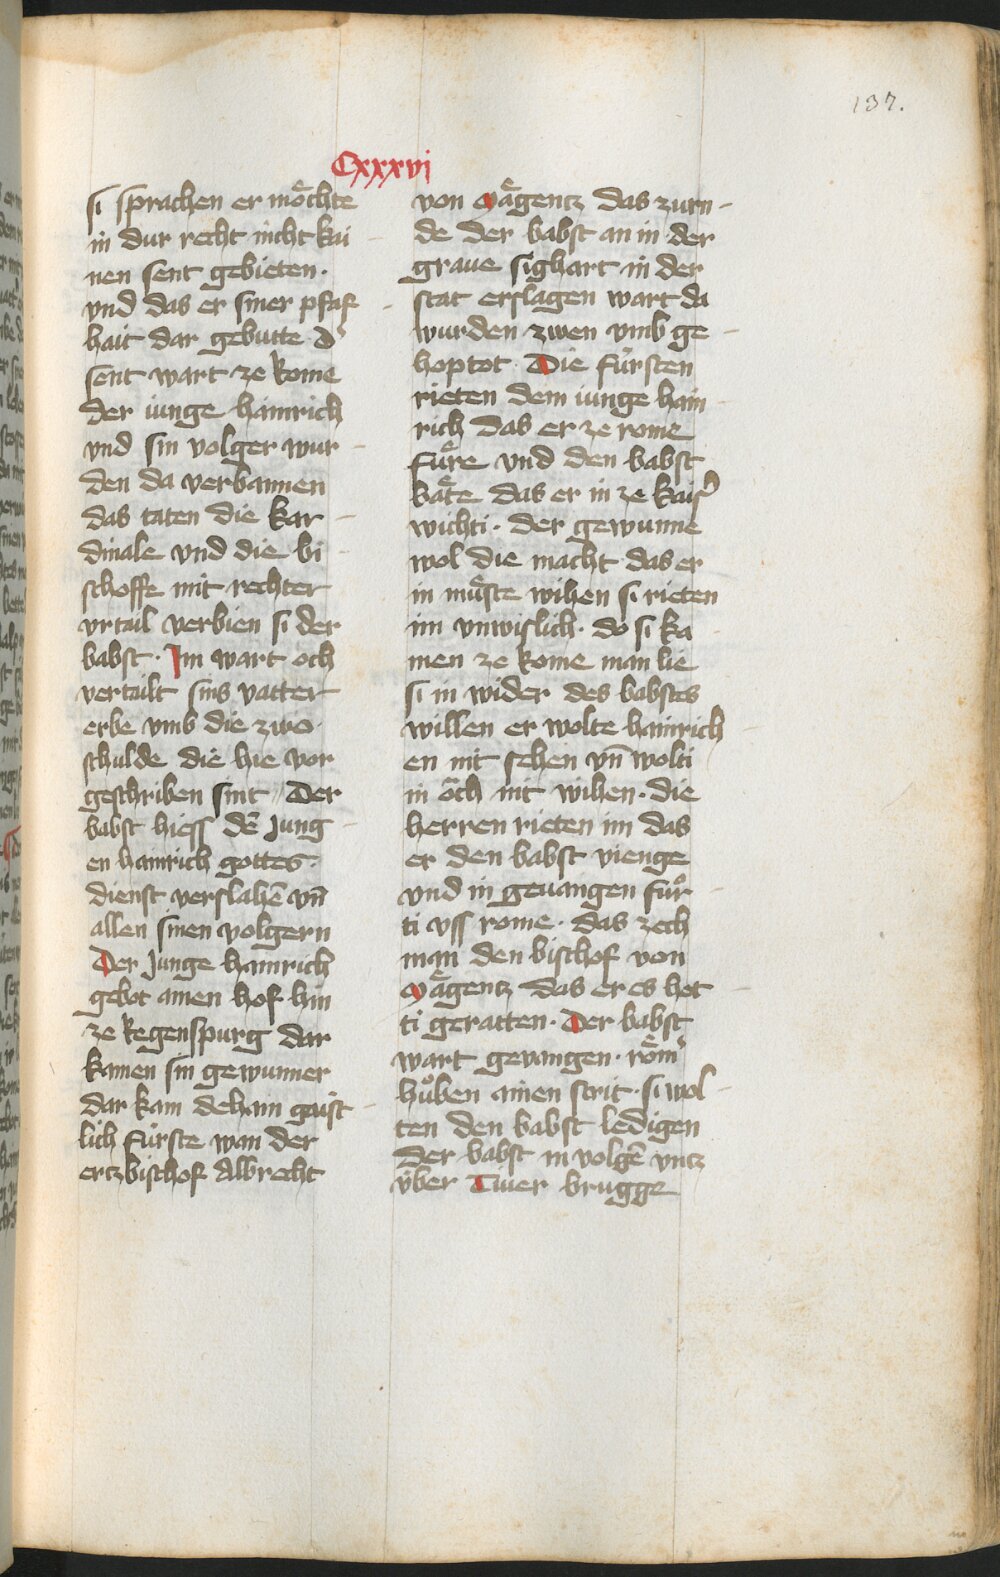 137.
Cxxxvi
si sprachen er moͤchte
in dur recht nicht kai
nen sent gebieten.
vnd das er siner pfaf
hait dar gebutte d'
sent wart ze Rome
der iunge hainrich
vnd sin volger wur
den da verbannen
das taten die kar
dinale vnd die bi
schoffe mit rechter
vrtail verbien si der
babst. Im wart och
vertailt sins vatter
erbe vmb die zwo
schulde die hie vor
geschriben sint Der
babst hiess dē Jung
en hainrich gottes
dienst verslahē vn̄
allen sinen volgern
Der Junge hainrich
gebot ainen hof hin
ze Regenspurg dar
kamen sin gewunner
dar kam dehain gaist
lich fürste wan der
ertzbischof Albrecht
von Maͤgentz das zurn
de der babst an in der
graue sighart in der
stat erslagen wart da
wurden zwen vmb ge
hoptot Die fürsten
rieten dem iunge hain
rich das er ze rome
fuͤre vnd den babst
baͤte das er in ze kais'
wichti. der gewunne
wol die macht das er
in muͤste wihen si rieten
im vnwislich. do si ka
men ze Rome man lie
si in wider des babstes
willen er wolte hainrich
en nit sehen vn̄ wolti
in oͤch nit wihen. die
herren rieten im das
er den babst vienge
vnd in geuangen fuͦr
ti vss rome. das zech
man den bischof von
Maͤgentz das er es het
ti geratten. Der babst
wart gevangen. roͤm'
huͦben ainen strit. si wol
ten den babst ledigen
der babst in volgē vntz
v̈ber Tiuer brugge